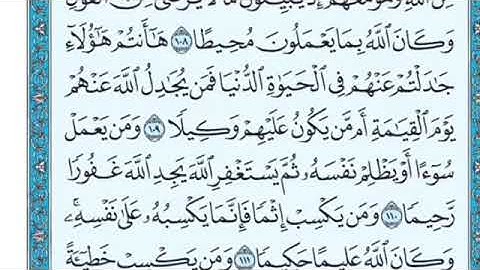 مِنَ ٱللَّهِ وَهُوَ مَعَهُمۡ إِذۡ يُبَيِّتُونَ مَا لَا يَرۡضَىٰ مِنَ ٱلۡقَوۡلِۚ
وَكَانَ ٱللَّهُ بِمَا يَعۡمَلُونَ مُحِيطًا ١٠٨ هَٰٓأَنتُمۡ هَٰٓؤُلَآءِ
جَٰدَلۡتُمۡ عَنۡهُمۡ فِي ٱلۡحَيَوٰةِ ٱلدُّنۡيَا فَمَن يُجَٰدِلُ ٱللَّهَ عَنۡهُمۡ
يَوۡمَ ٱلۡقِيَٰمَةِ أَم مَّن يَكُونُ عَلَيۡهِمۡ وَكِيلٗا ١٠٩ وَمَن يَعۡمَلۡ
سُوٓءًا أَوۡ يَظۡلِمۡ نَفۡسَهُۥ ثُمَّ يَسۡتَغۡفِرِ ٱللَّهَ يَجِدِ ٱللَّهَ غَفُورٗا
رَّحِيمٗا ١١٠ وَمَن يَكۡسِبۡ إِثۡمٗا فَإِنَّمَا يَكۡسِبُهُۥ عَلَىٰ نَفۡسِهِۦۚ
وَكَانَ ٱللَّهُ عَلِيمًا حَكِيمٗا ١١١ وَمَن يَكۡسِبۡ خَطِيٓـَٔةً